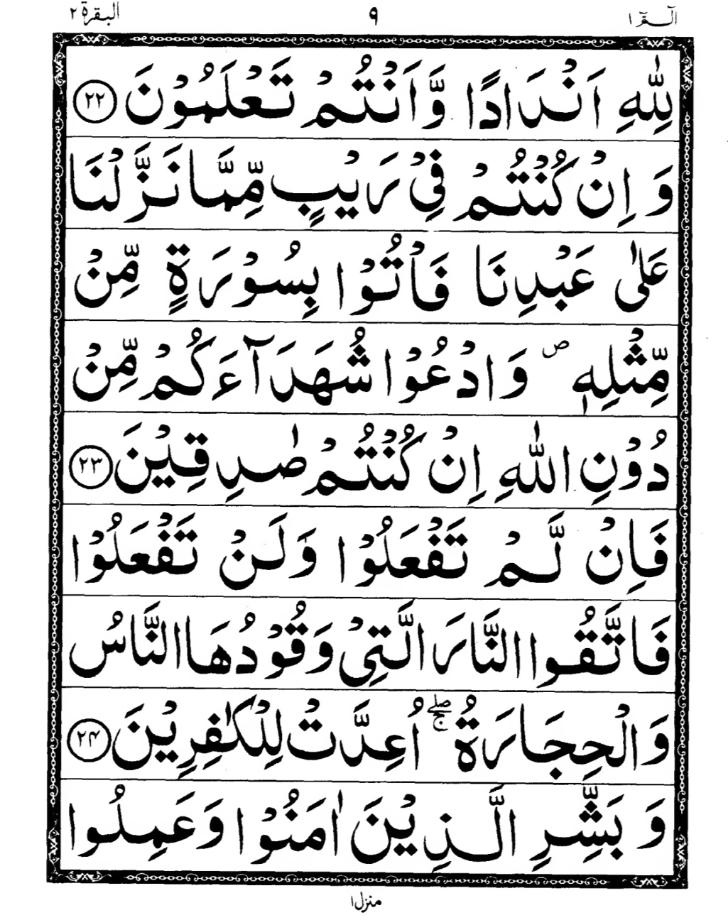 الٓمّٓ ١ ٩ البقرة ٢
لِلّٰهِ اَنْدَادًا وَّاَنْتُمْ تَعْلَمُوْنَ ﴿۲۲﴾
وَ اِنْ كُنْتُمْ فِیْ رَیْبٍ مِّمَّا نَزَّلْنَا
عَلٰى عَبْدِنَا فَاْتُوْا بِسُوْرَةٍ مِّنْ
مِّثْلِهٖ ص وَادْعُوْا شُهَدَآءَكُمْ مِّنْ
دُوْنِ اللّٰهِ اِنْ كُنْتُمْ صٰدِقِیْنَ ﴿۲۳﴾
فَاِنْ لَّمْ تَفْعَلُوْا وَلَنْ تَفْعَلُوْا
فَاتَّقُوا النَّارَ الَّتِیْ وَقُوْدُهَا النَّاسُ
وَالْحِجَارَةُ ۖۚ اُعِدَّتْ لِلْكٰفِرِیْنَ ﴿۲۴﴾
وَ بَشِّرِ الَّذِیْنَ اٰمَنُوْا وَعَمِلُوا
منزل ١